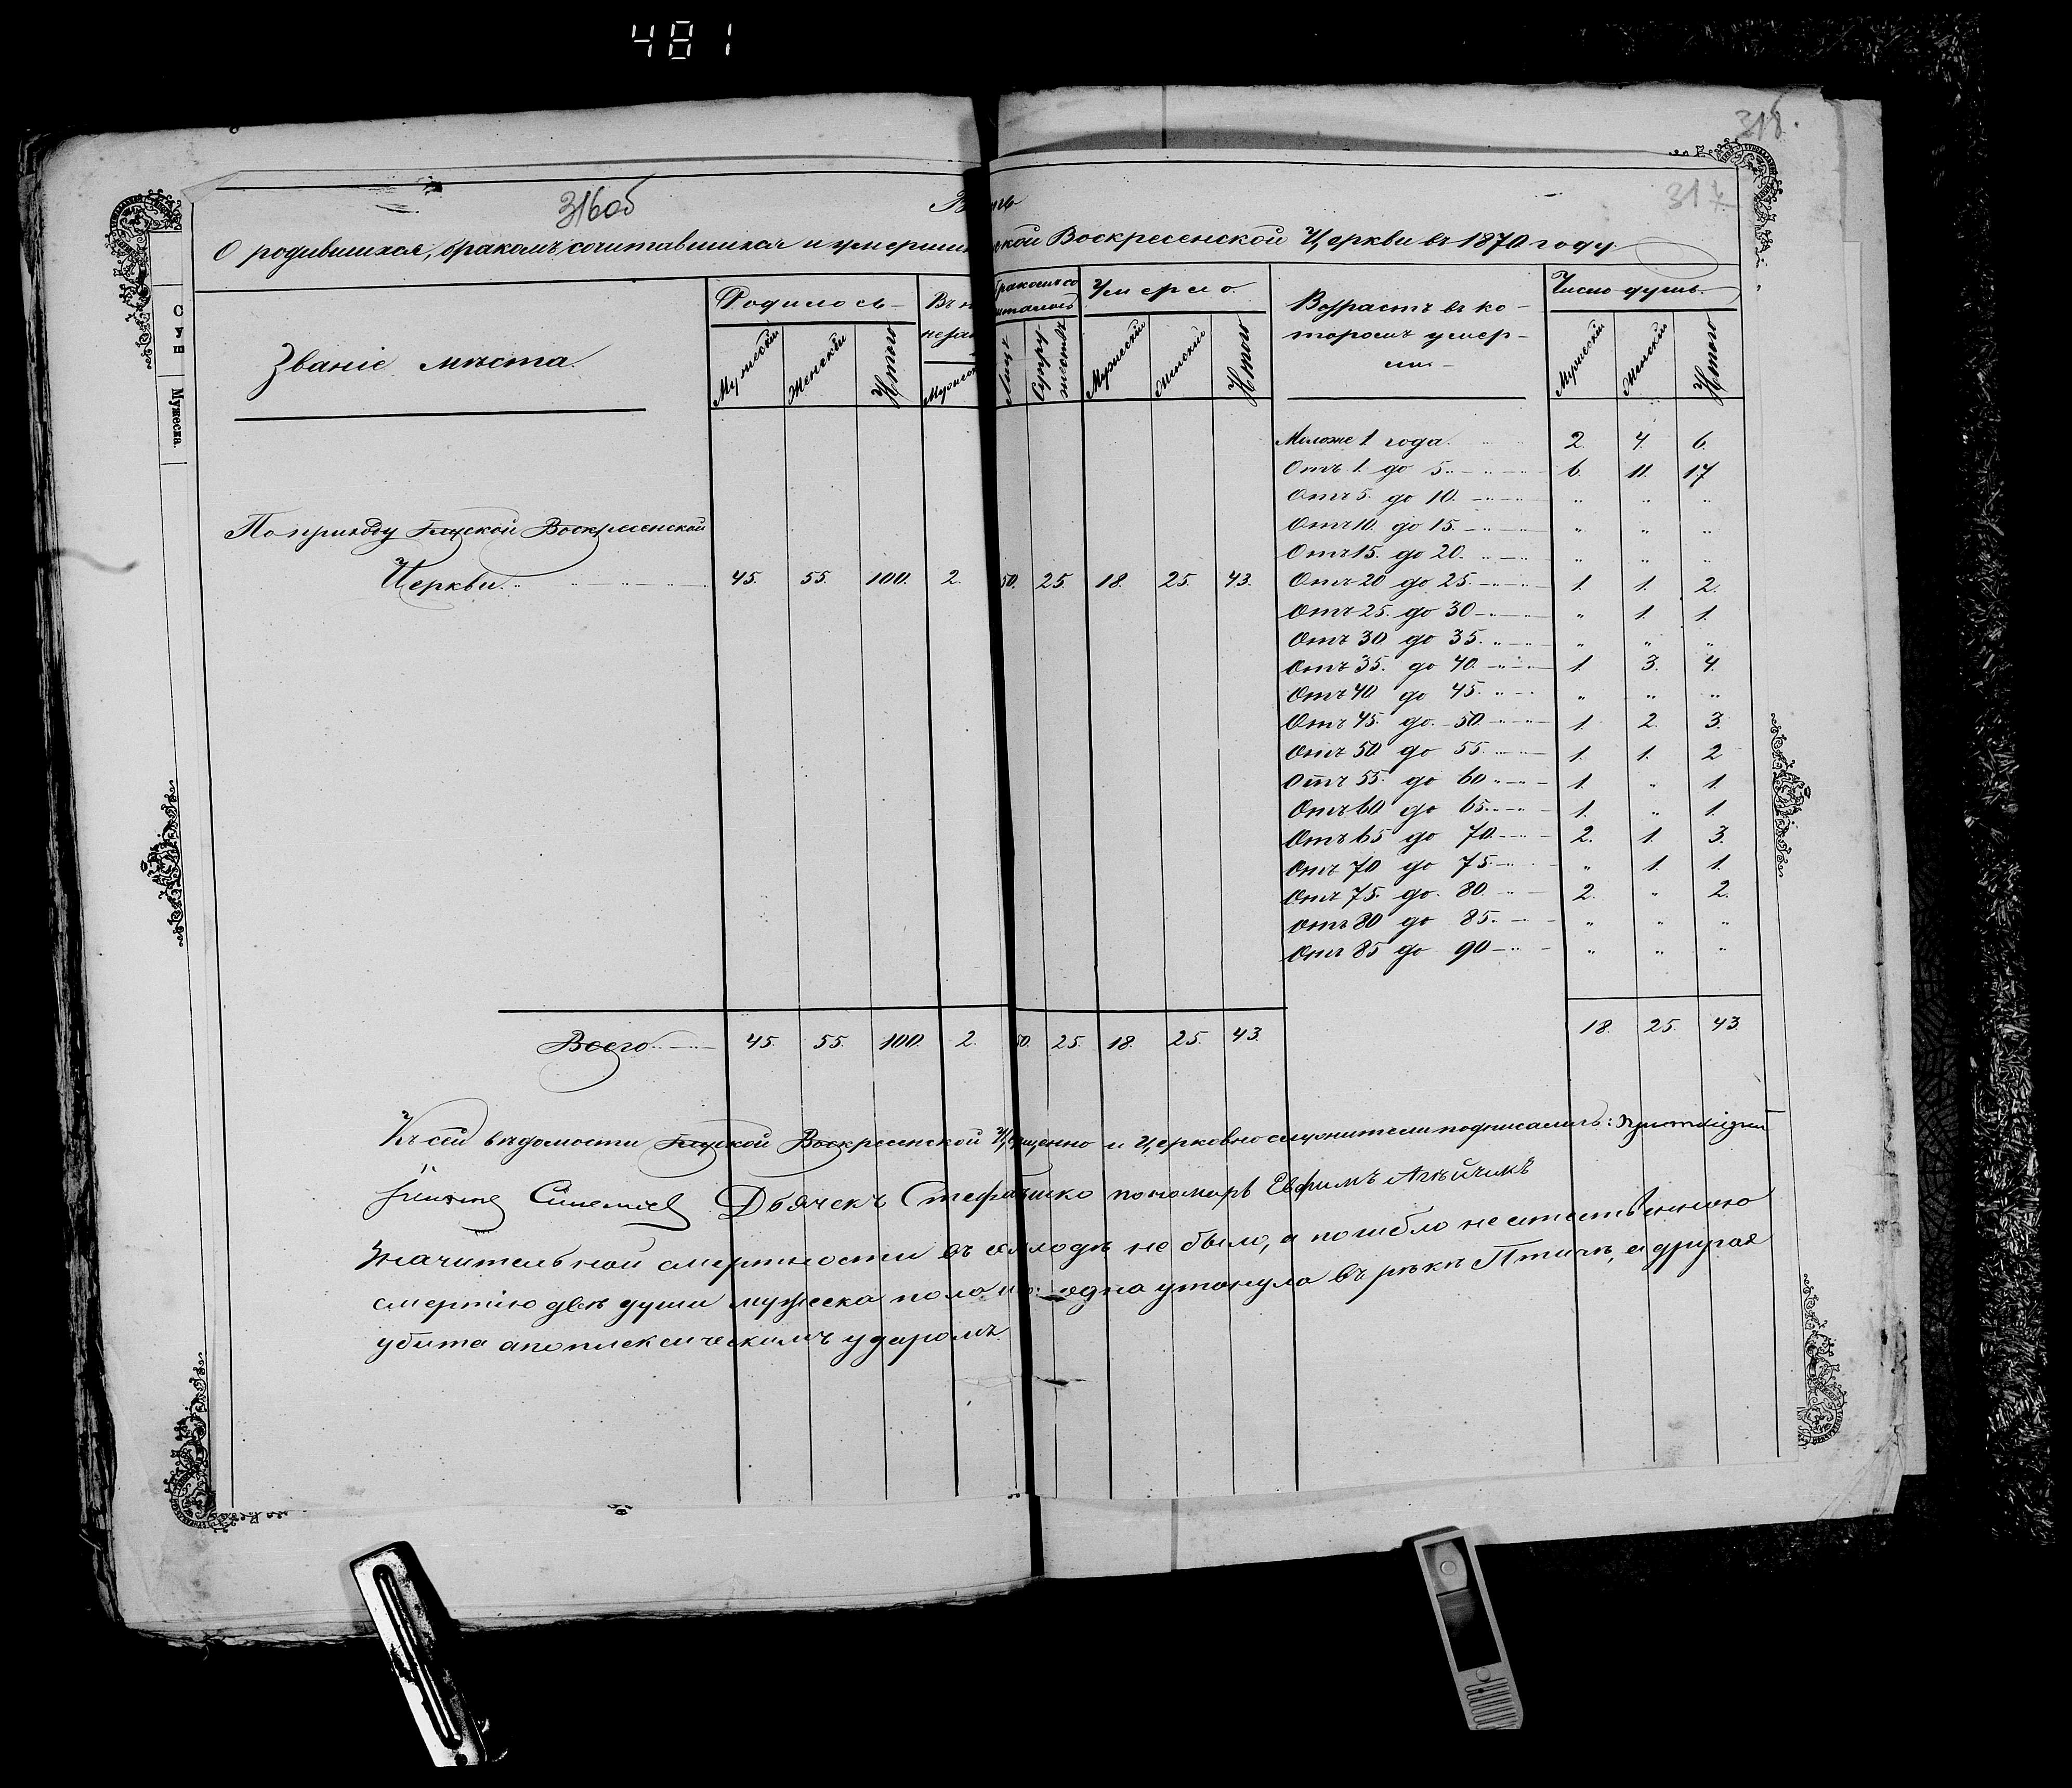 481
318.
316об
317
О родившихся, бракомъ сочитавшихся и умерши ской Воскресенской Церкви въ 1870 году.
Званіе мѣста.
Родилось
Мужескій Женскій Итого
Въ н
незак
Мужеск
Бракомъ со
читалось
Лицъ Супружествъ
Умерло
Мужескій Женскій Итого
Возрастъ въ ко-
торомъ умер-
ли-
Число душъ.
Мужескій Женскій Итого
Мужеска
Моложе 1 года. 2 4. 6.
Отъ 1. до 5. 6. 11. 17
Отъ 5. до 10. " " "
Отъ 10. до 15. " " "
Отъ 15. до 20. " " "
По приходу Глуской Воскресенской
Церкви. 45. 55. 100. 2. 50. 25. 18. 25. 43. Отъ 20 до 25. 1. 1. 2.
Отъ 25. до 30 " 1. 1.
Отъ 30 до 35. " " "
Отъ 35. до 40. 1. 3. 4.
Отъ 40 до 45. " " "
Отъ 45. до 50. 1. 2. 3.
Отъ 50 до 55. 1. 1. 2
Отъ 55. до 60 1. " 1.
Отъ 60 до 65. 1. " 1.
Отъ 65 до 70. 2. 1. 3.
Отъ 70 до 75. " 1. 1.
Отъ 75. до 80 2. " 2.
Отъ 80 до 85. " " "
Отъ 85 до 90 " " "
Всего 45. 55. 100. 2. 50. 25. 18. 25. 43. 18. 25. 43.
Къ сей вѣдомости Глуской Воскресенской Церкви и церковнослужители подписались:
Дьячекъ Стефанъ пономарь Евфимъ
Значительной смертности въ семъ годѣ не было, а погибло неестественною
смертію двѣ души мужеска пола одна утонула въ рѣкѣ Птичь, а другая
убита апоплексическимъ ударомъ.